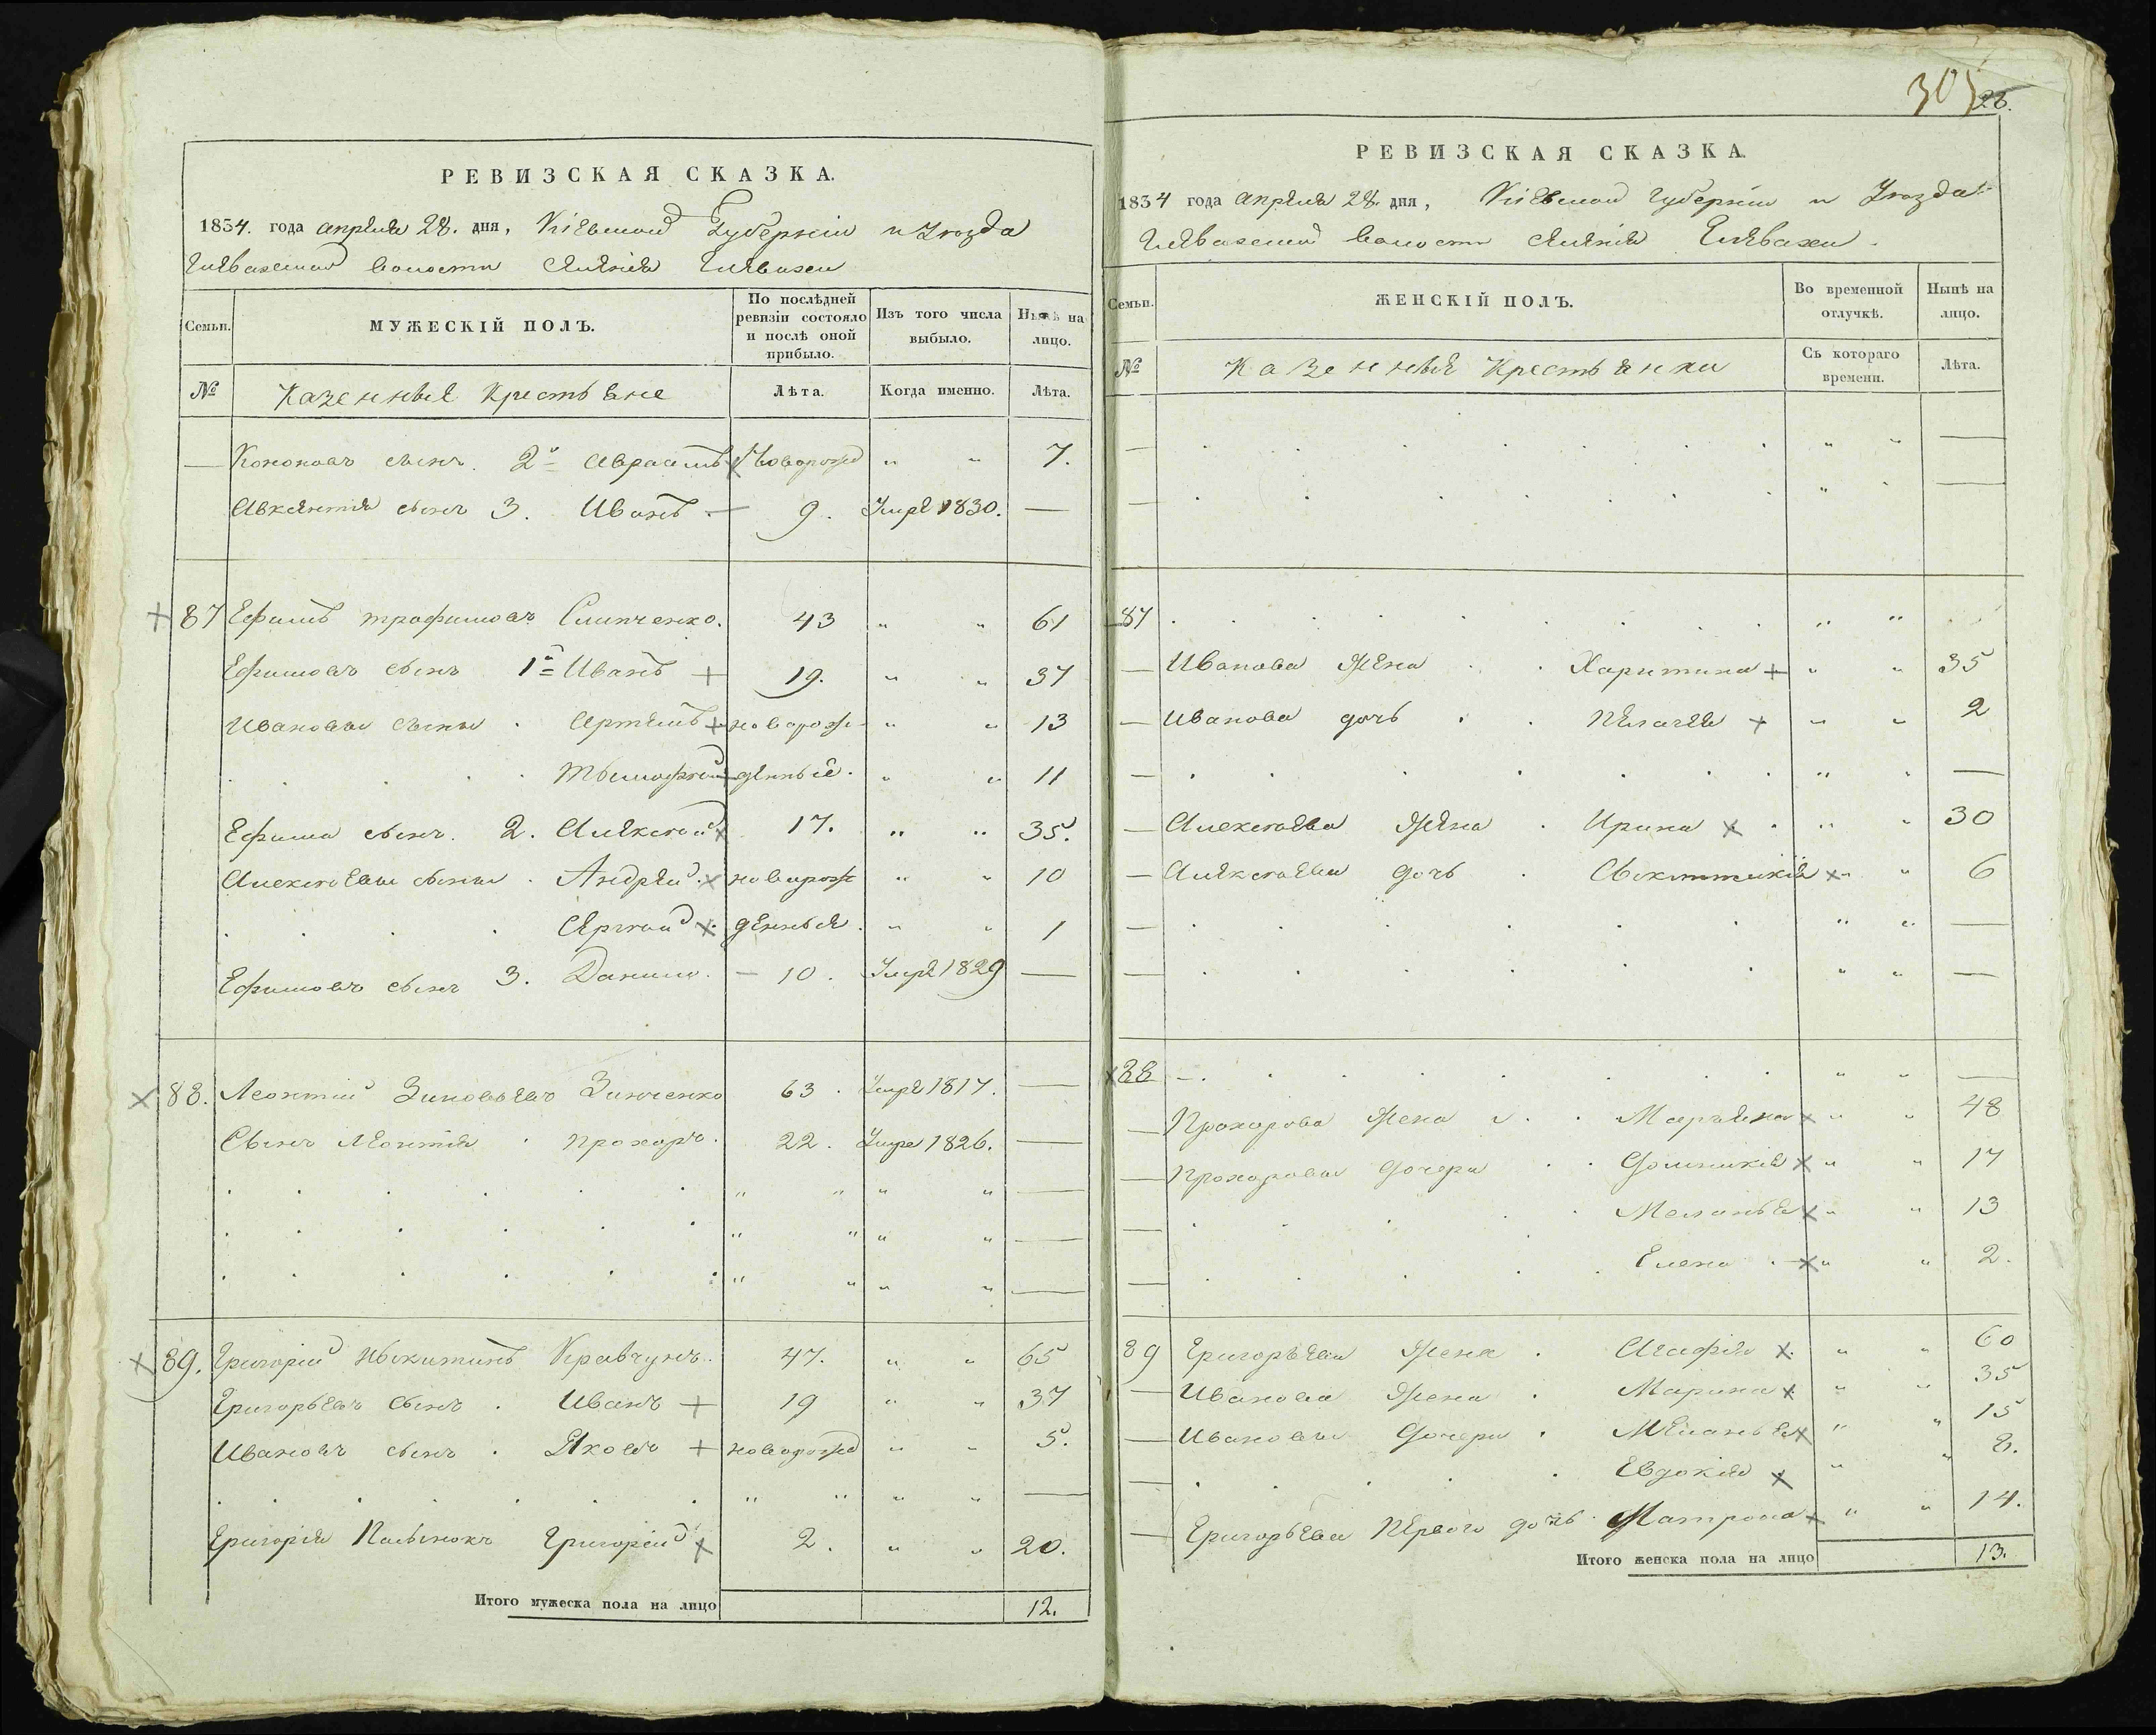 РЕВИЗСКАЯ СКАЗКА.
1834. года апреля 28. дня, Кіевской Губерніи и Уѣзда
волости селенія
Семьи. МУЖЕСКІЙ ПОЛЪ. По послѣдней ревизіи состояло и послѣ оной прибыло. Изъ того числа выбыло. Нынѣ на лицо.
№ Казенные Крестьяне Лѣта. Когда именно. Лѣта.
— Кононовъ сынъ. 2й Авраамъ Новорожд " " 7.
Авксентія сынъ 3. Иванъ — 9. Умре 1830. —
87 Ефимъ Трофимовъ 43 " " 61
Ефимовъ сынъ 1й Иванъ 19. " " 37
Ивановы сыны Артемъ новорож- " " 13
Тымофей денные. " " 11
Ефима сынъ. 2. Алексей 17. " " 35.
Алексеевы сыны Андрей новорож " " 10
Сергей денные. " " 1
Ефимовъ сынъ 3. Данило. — 10. Умре 1829 —
88. Леонтий Зиновьевъ Зинченко 63. Умре 1817. —
Сынъ Леонтія Прохоръ. 22. Умре 1826. —
" " " " —
" " " " —
" " " " —
89. Григорій Ныкитинъ Кравчунъ. 47. " " 65
Григорьевъ Сынъ. Иванъ 19 " " 37
Ивановъ сынъ. Яковъ новорожд " " 5.
" " " " —
Григорія Григорій 2. " " 20.
Итого мужеска пола на лицо 12.
305 28.
РЕВИЗСКАЯ СКАЗКА.
1834 года апреля 28. дня, Кіевской Губерніи и Уѣзда
волости селенія
Семьи. ЖЕНСКІЙ ПОЛЪ. Во временной отлучкѣ. Нынѣ на лицо.
№ Казенные Крестьянки Съ котораго времени. Лѣта.
— " " —
— " " —
87 " "
— Иванова жена Харитина " " 35
— Иванова дочь Пелагея " " 2
— " " —
— Алексеева жена Ирина " " 30
— Алексеева дочь " " 6
— " " —
— " " —
88 " " —
— Прохорова жена Марьяна " " 48
— Прохоровы дочери Домникія " " 17
— Меланья " " 13
— Елена " " 2.
89 Григорьева жена Агафія " " 60
— Иванова жена Марина " " 35
— Ивановы дочери Меланья " " 15
— Евдокія " " 8.
— Григорьева Первого дочь Матрона " " 14.
Итого женска пола на лицо 13.